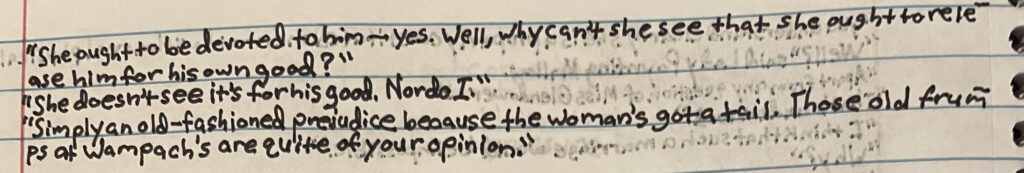 "She ought to be devoted to him — yes. Well, why can't she see that she ought to rele-
ase him for his own good?"
"She doesn't see it's for his good. Nor do I."
"Simply an old-fashioned prejudice because the woman's got a tail. Those old frum-
ps at Wampach's are quite of your opinion."